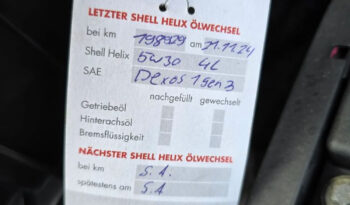 LETZTER SHELL HELIX ÖLWECHSEL
bei km 198909 am 21.11.24
Shell Helix 5W30 4L
SAE Dexos 1 Gen 3
nachgefüllt gewechselt
Getriebeöl
Hinterachsöl
Bremsflüssigkeit
NÄCHSTER SHELL HELIX ÖLWECHSEL
bei km S.A.
spätestens am S.A